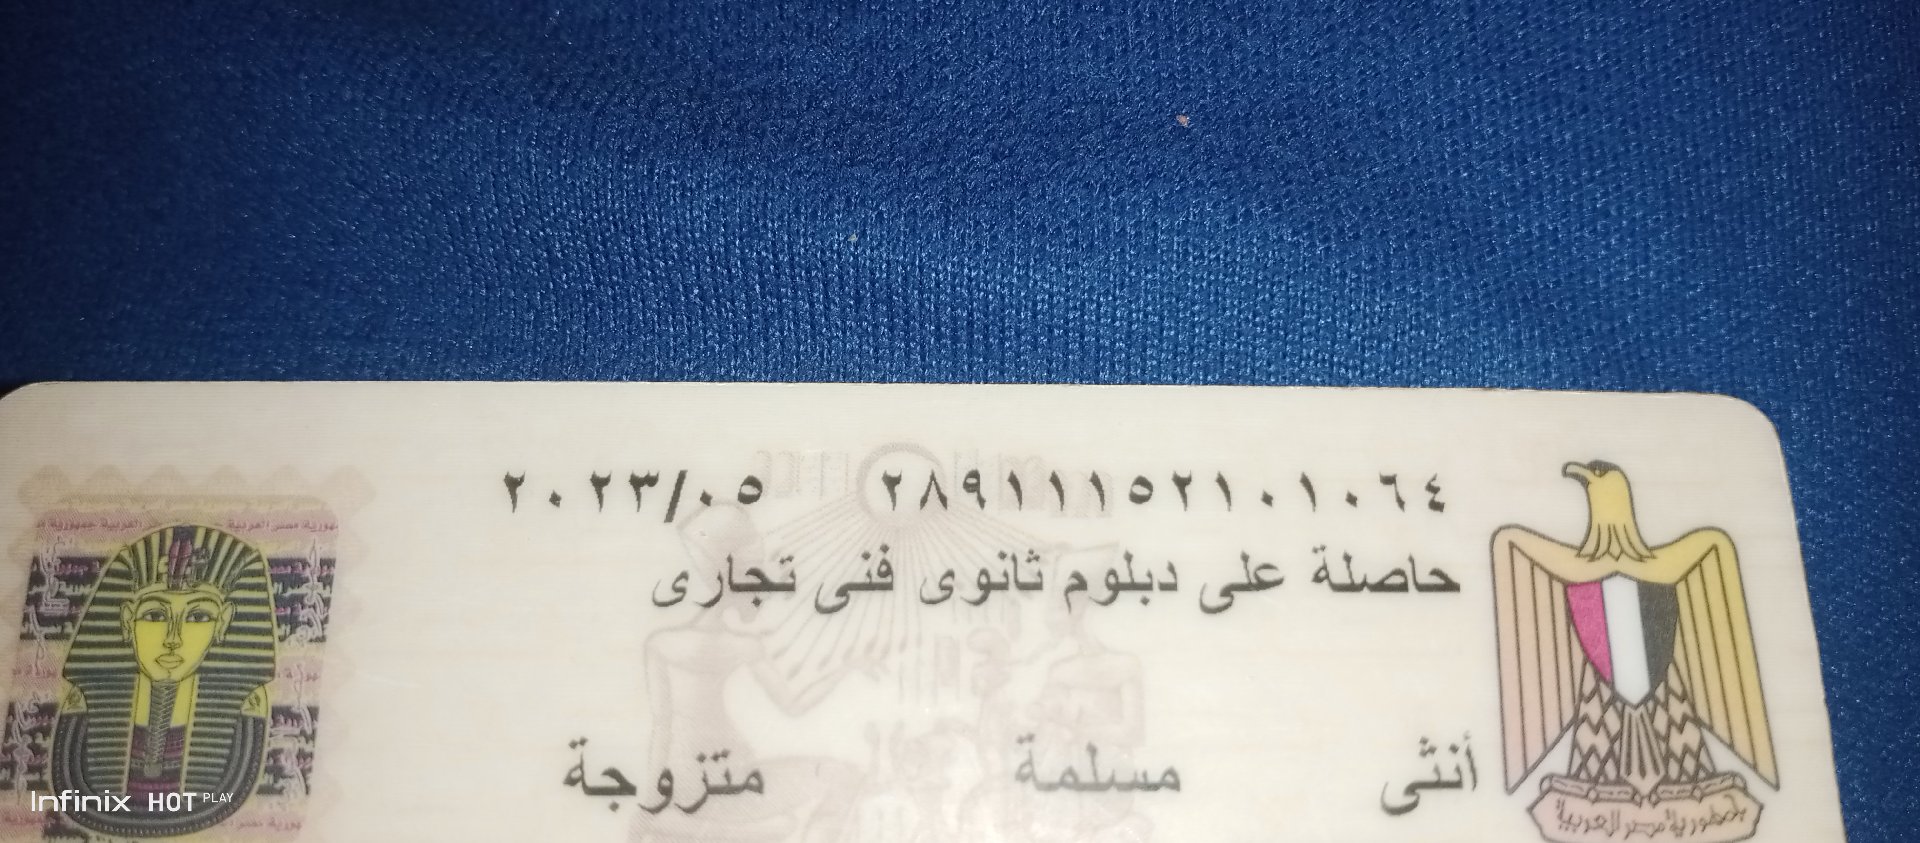 ٢٨٩١١١٥٢١٠١٠٦٤ ٢٠٢٣/٠٥
حاصلة على دبلوم ثانوى فنى تجارى
أنثى مسلمة متزوجة
جمهورية مصر العربية
Infinix HOT PLAY